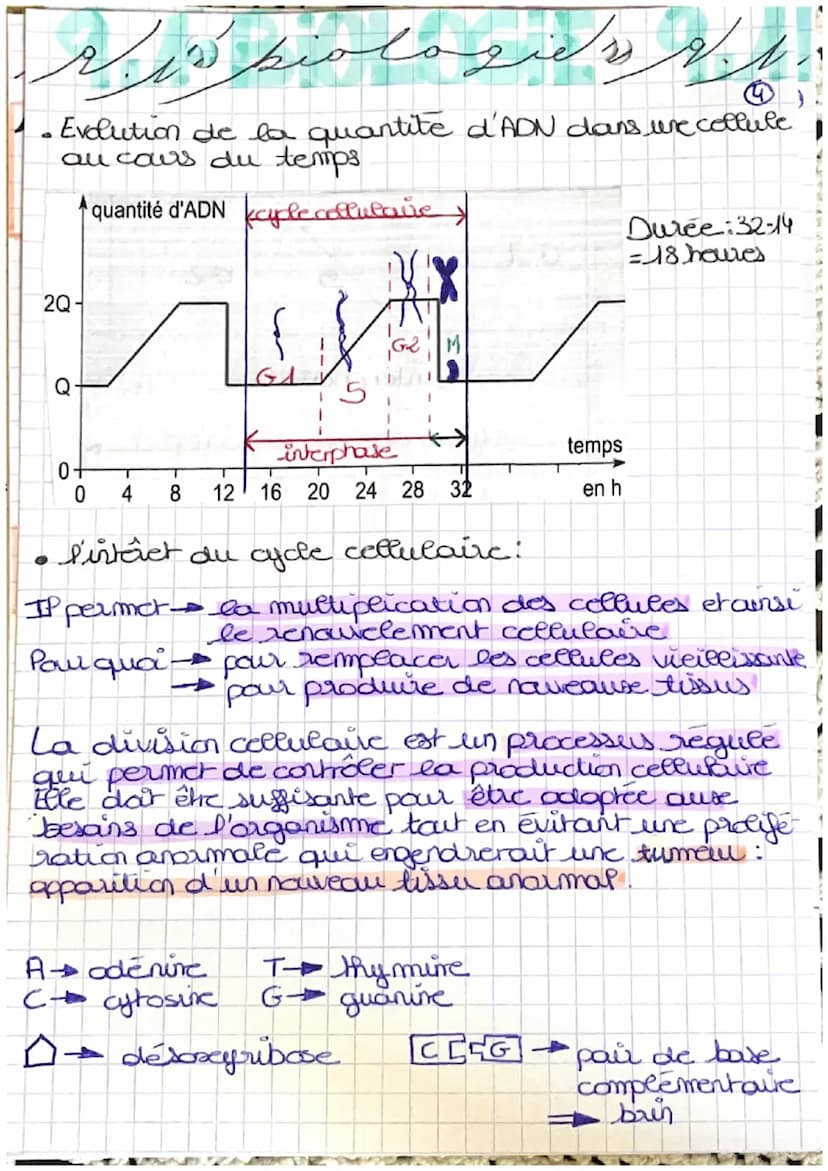 2.1 BIOLOGIE 2.1
4
• Evolution de la quantité d'ADN dans une cellule
au cours du temps
quantité d'ADN
cycle cellulaire
Durée : 32-14
= 18 heures
2Q
G2 M
Q
G1 S
interphase
temps
0
0 4 8 12 16 20 24 28 32 en h
• l'intêret du cycle cellulaire :
Il permet → la multiplication des cellules et ainsi
le renouvelement cellulaire
Pourquoi → pour remplacer les cellules vieillissante
→ pour produire de nouveaux tissus
La division cellulaire est un processus régulé
qui permet de contrôler la production cellulaire
Elle doit être suffisante pour être adaptée aux
besoins de l'organisme tout en évitant une prolifé-
ration anormale qui engendrerait une tumeur :
apparition d'un nouveau tissu anormal.
A → adénine T → thymine
C → cytosine G → guanine
→ désoxyribose C G → pair de base
complémentaire
⇒ brin